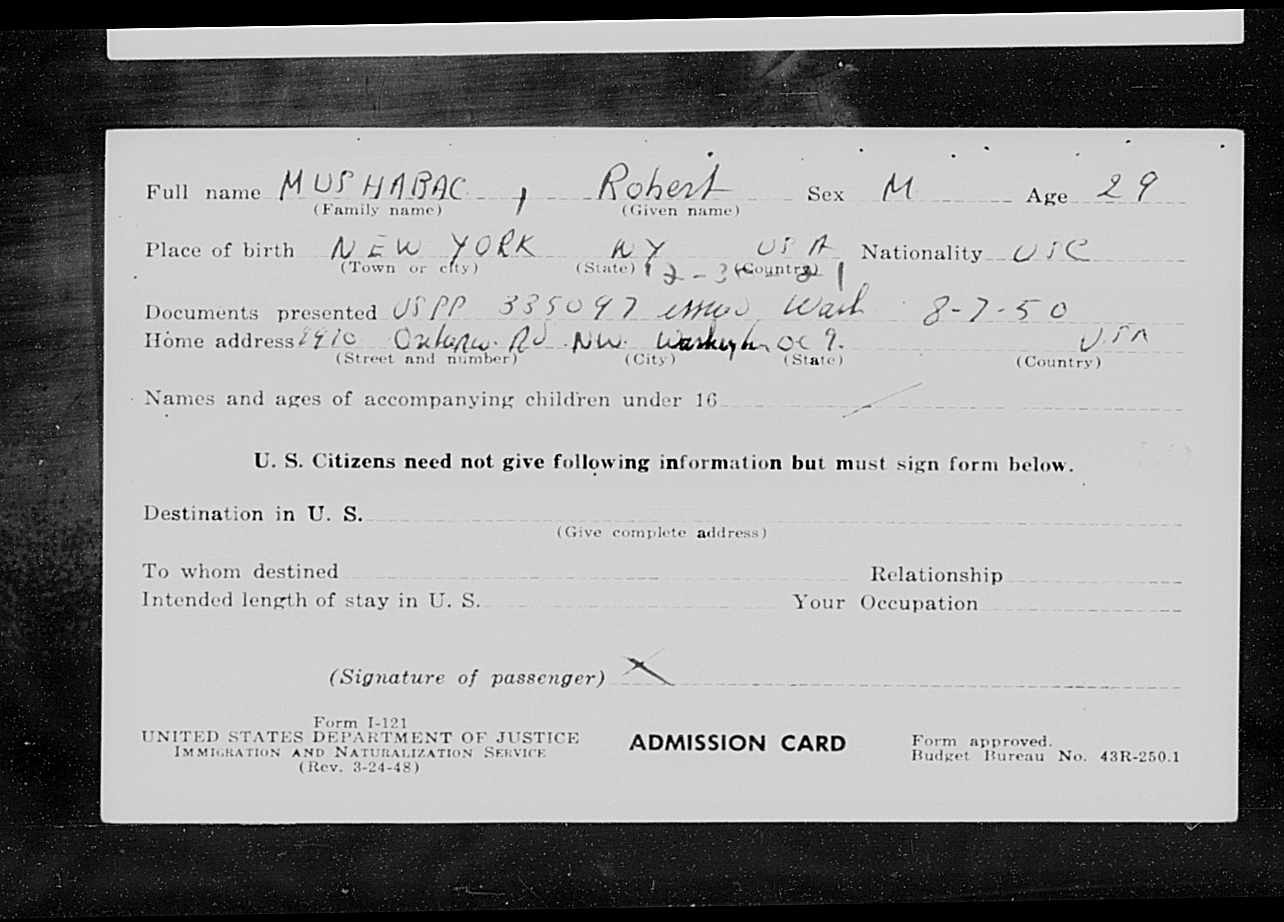 Full name MUSHABAC, Robert Sex M Age 29
(Family name) (Given name)
Place of birth NEW YORK NY USA Nationality USC
(Town or city) (State) (Country)
Documents presented USPP 335097 issued Wash 8-7-50
Home address Ontario Rd NW. Washington DC 9. USA
(Street and number) (City) (State) (Country)
Names and ages of accompanying children under 16
U. S. Citizens need not give following information but must sign form below.
Destination in U. S.
(Give complete address)
To whom destined Relationship
Intended length of stay in U. S. Your Occupation
(Signature of passenger) X
Form I-121
UNITED STATES DEPARTMENT OF JUSTICE
IMMIGRATION AND NATURALIZATION SERVICE
(Rev. 3-24-48)
ADMISSION CARD
Form approved.
Budget Bureau No. 43R-250.1